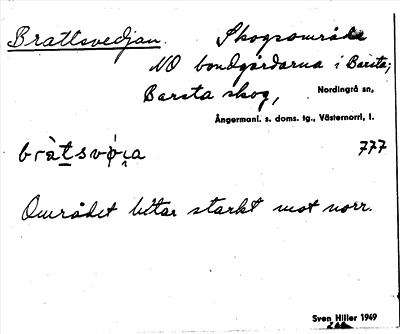 Brattsvedjan. Skogsområde
NO bondgårdarna i Barsta;
Barsta skog, Nordingrå sn,
Ångermanl. s. doms. tg., Västernorrl. l.
777
Området lutar starkt mot norr.
Sven Hiller 1949